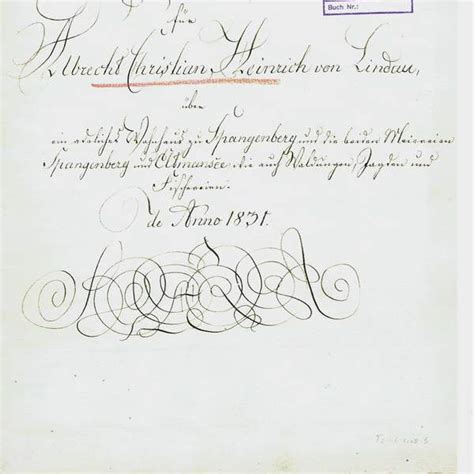 Buch Nr.:
für
Albrecht Christian, Heinrich von Lindau,
über
ein adeliches Wohnhaus zu Spangenberg und die beiden Meiereien
Spangenberg und Altmansée wie auch Waldungen, Jagden und
Fischereien.
de Anno 1831.